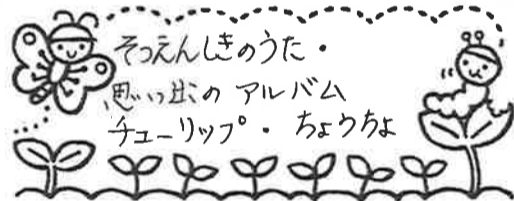 そつえんしきのうた・
思い出の アルバム
チューリップ・ ちょうちょ